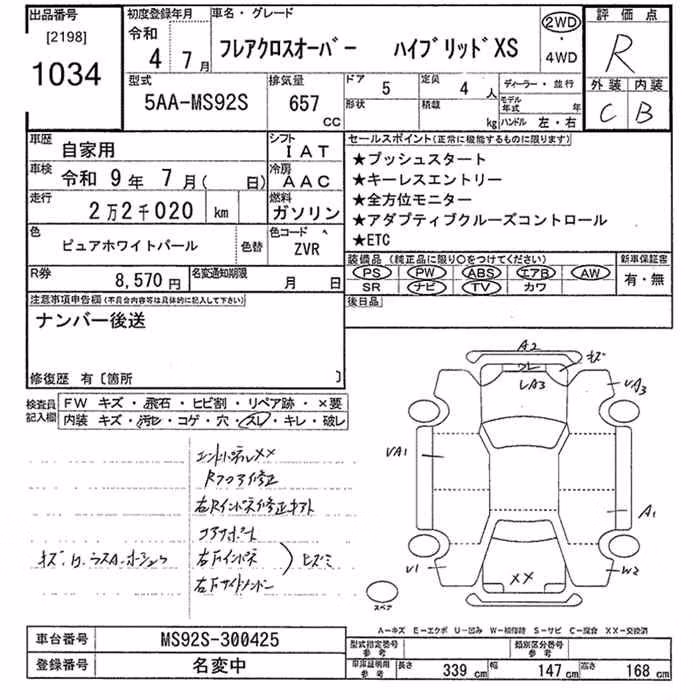 出品番号 初度登録年月 車名・グレード 評価点
[2198] 令和 4 7月 フレアクロスオーバー ハイブリッドXS 2WD・4WD R
1034 型式 排気量 ドア 5 定員 4人 ディーラー・並行 外装 内装
5AA-MS92S 657 CC 形状 積載 kg モデル年式 年 ハンドル 左・右 C B
車歴 自家用 シフト IAT セールスポイント(正常に機能するものに限ります)
車検 令和 9年 7月( 日) 冷房 AAC ★プッシュスタート
★キーレスエントリー
走行 2万2千020 km 燃料 ガソリン ★全方位モニター
★アダプティブクルーズコントロール
色 ピュアホワイトパール 色替 色コード ZVR ★ETC
装備品(純正品に限り○をつけてください) 新車保証書
R券 8,570円 名変通知期限 月 日 PS PW ABS エアB AW 有・無
SR ナビ TV カワ
注意事項申告欄(不具合内容等は具体的に記入して下さい) 後日品
ナンバー後送
修復歴 有〔箇所 〕
検査員記入欄 FW キズ・飛石・ヒビ割・リペア跡・×要
内装 キズ・汚レ・コゲ・穴・スレ・キレ・破レ
A2 キズ
LA3 VA3
エンドパネルXX
Rフロア修正
VA1 A1
コアサポート
右Fインパネ ヒズミ
右Fサイドメンバー
V1 XX W2
スペア
A—キズ E—エクボ U—凹み W—補修跡 S—サビ C—腐食 XX—交換済
車台番号 MS92S-300425 型式指定番号 参考 類別区分番号 参考
登録番号 名変中 車庫証明用 参考 長さ 339 cm 幅 147 cm 高さ 168 cm